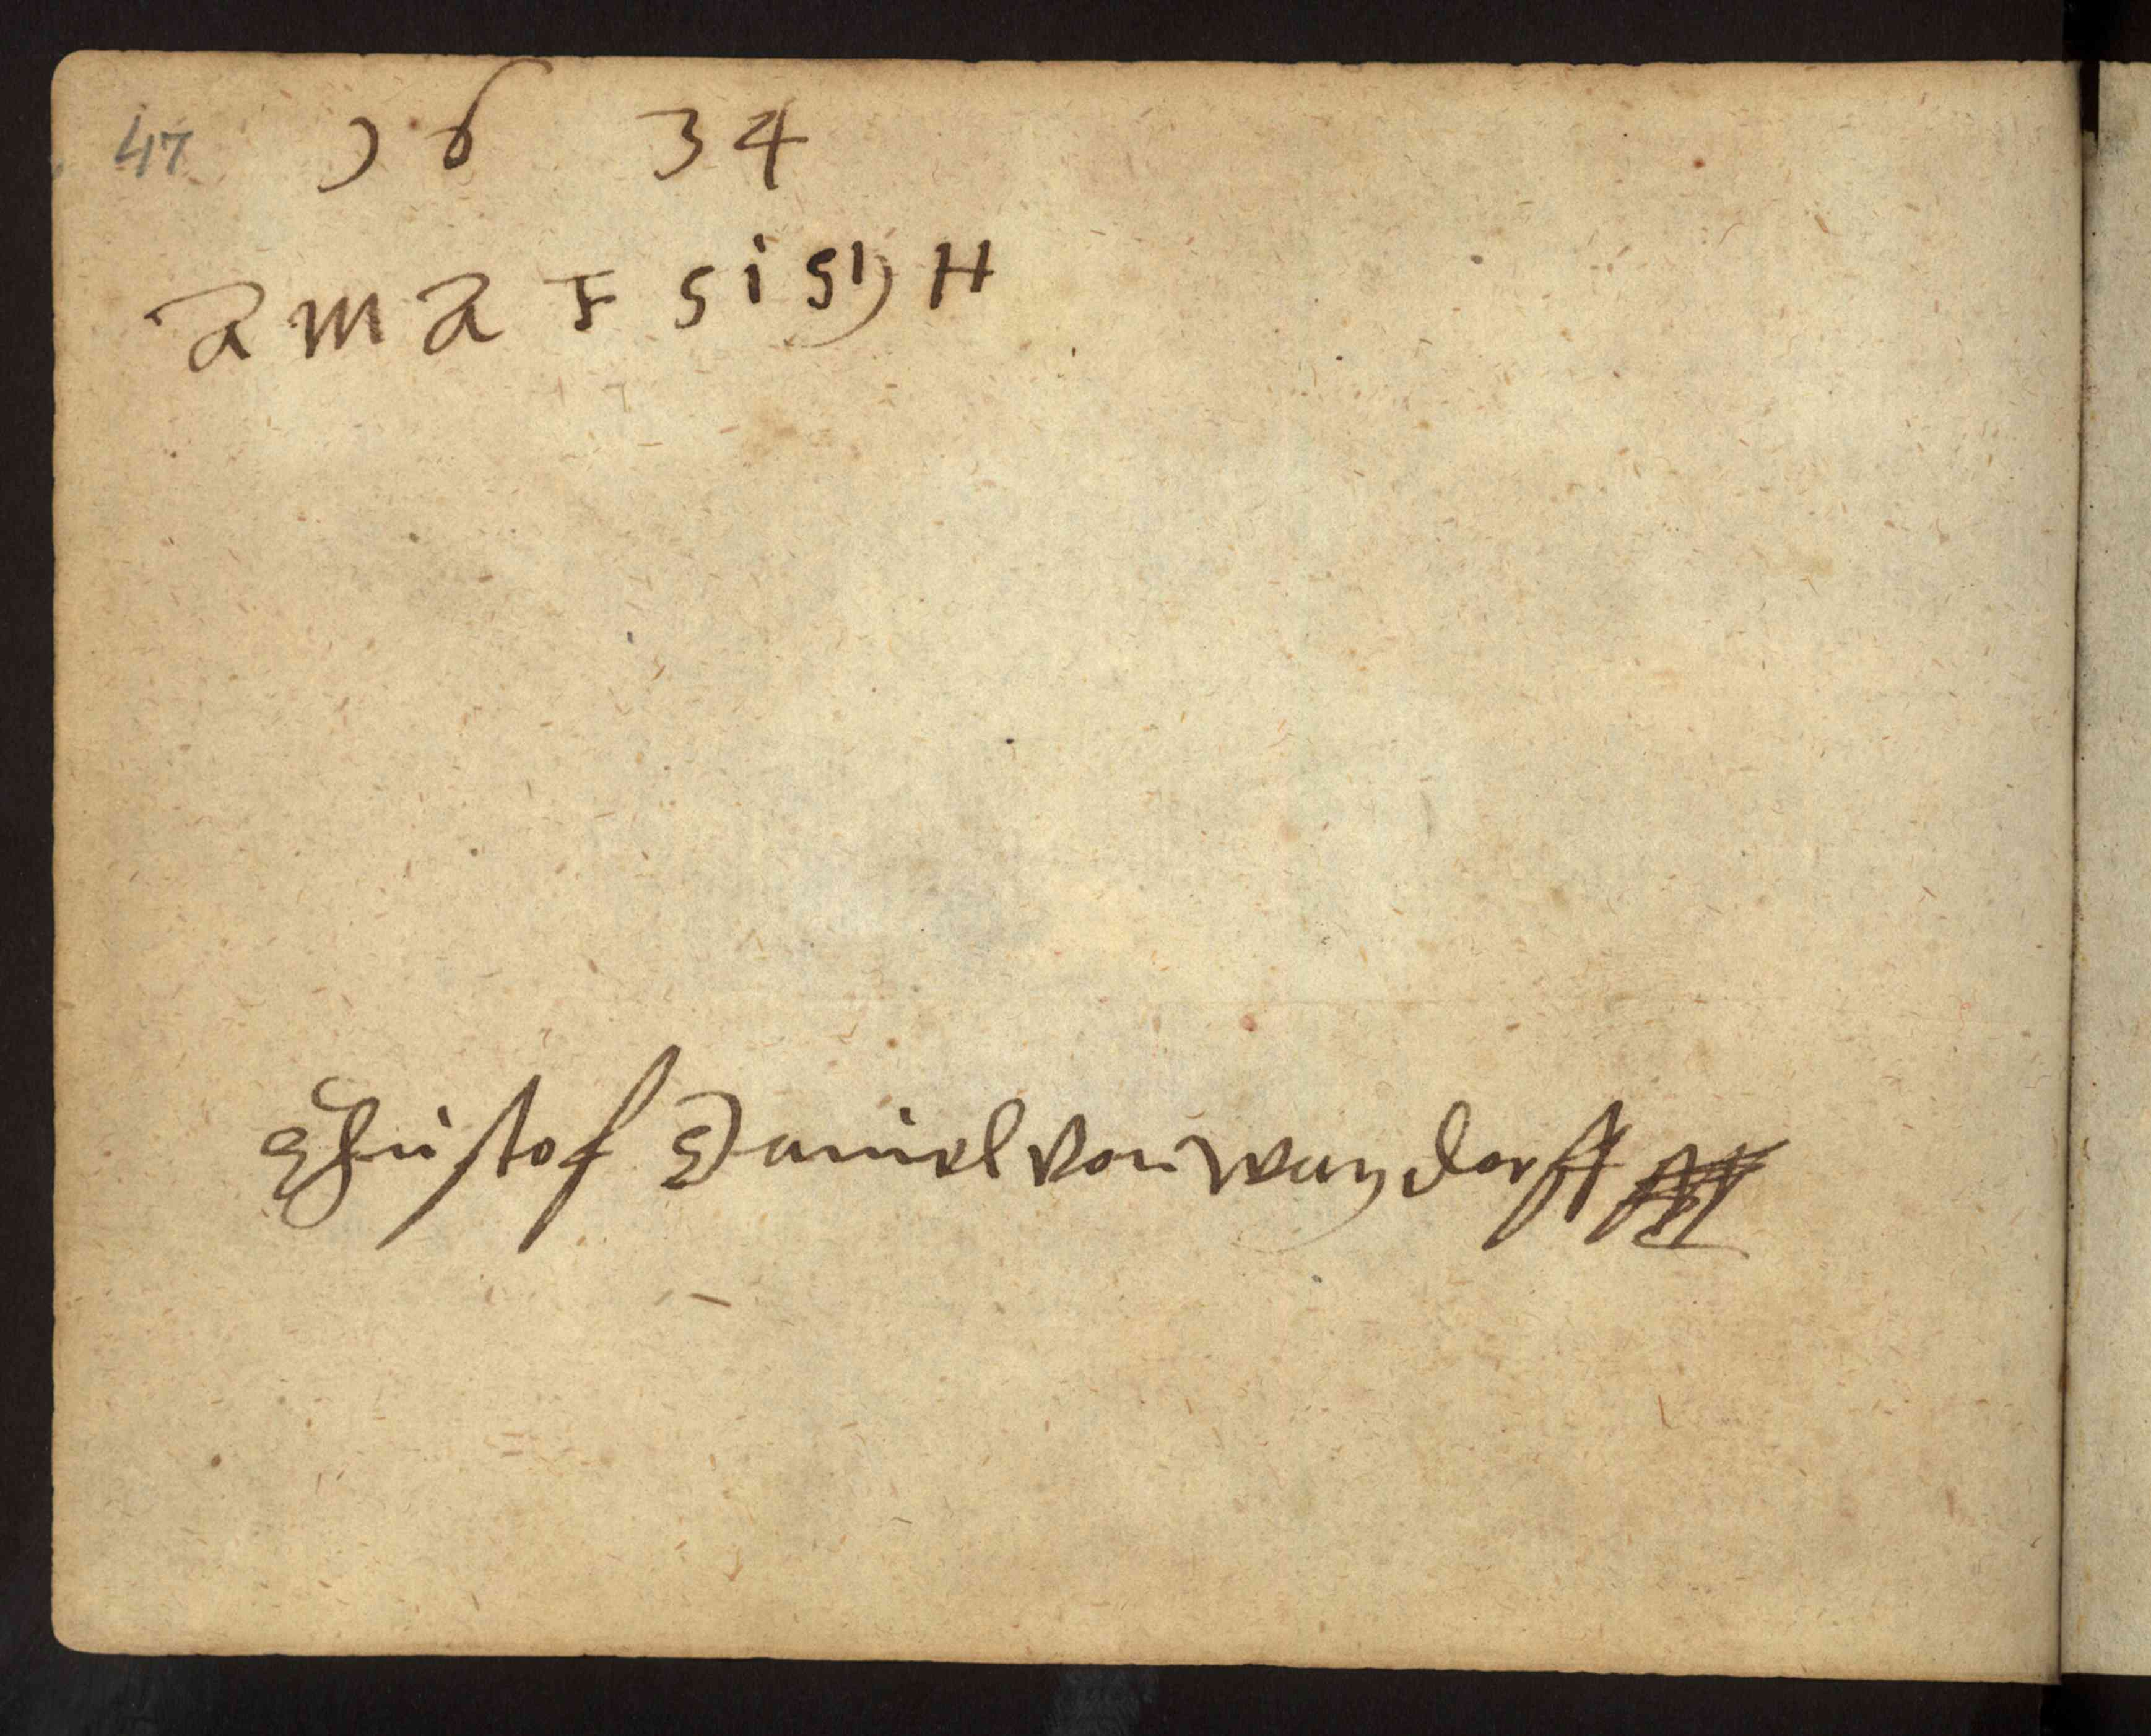 47 16 34
a m a F S i S D H
Christof Daniel von Wandorff